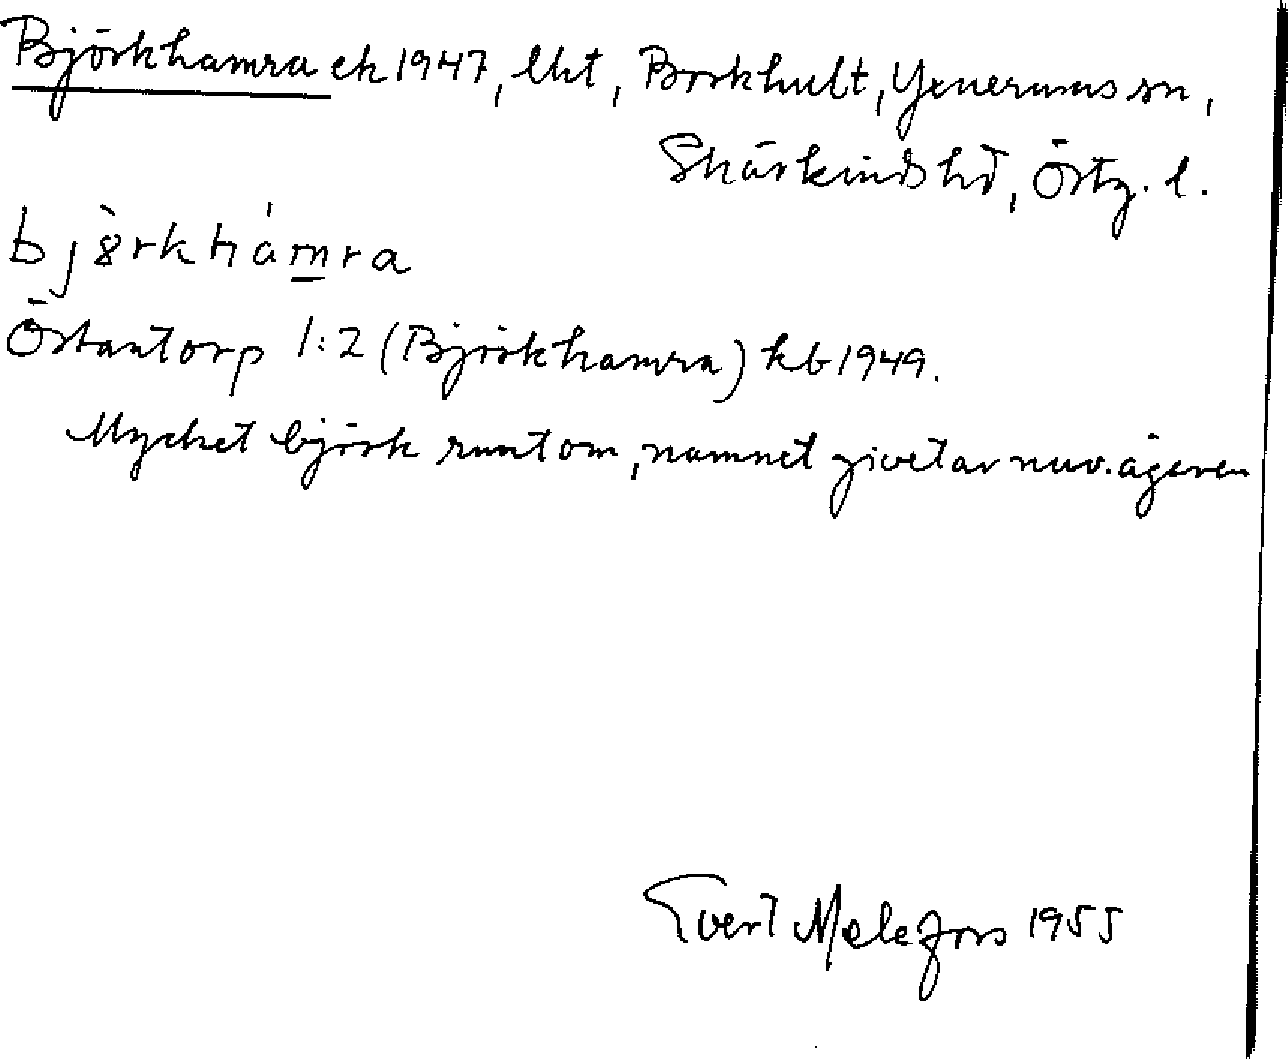 Björkhamra ek 1947, lht, Borkhult, Yxnerums sn,
Skärkinds hd, Östg. l.
björkhámra
Östantorp 1:2 (Björkhamra) kb 1949.
Mycket björk runt om, namnet givet av nuv. ägaren
Evert Melefors 1955